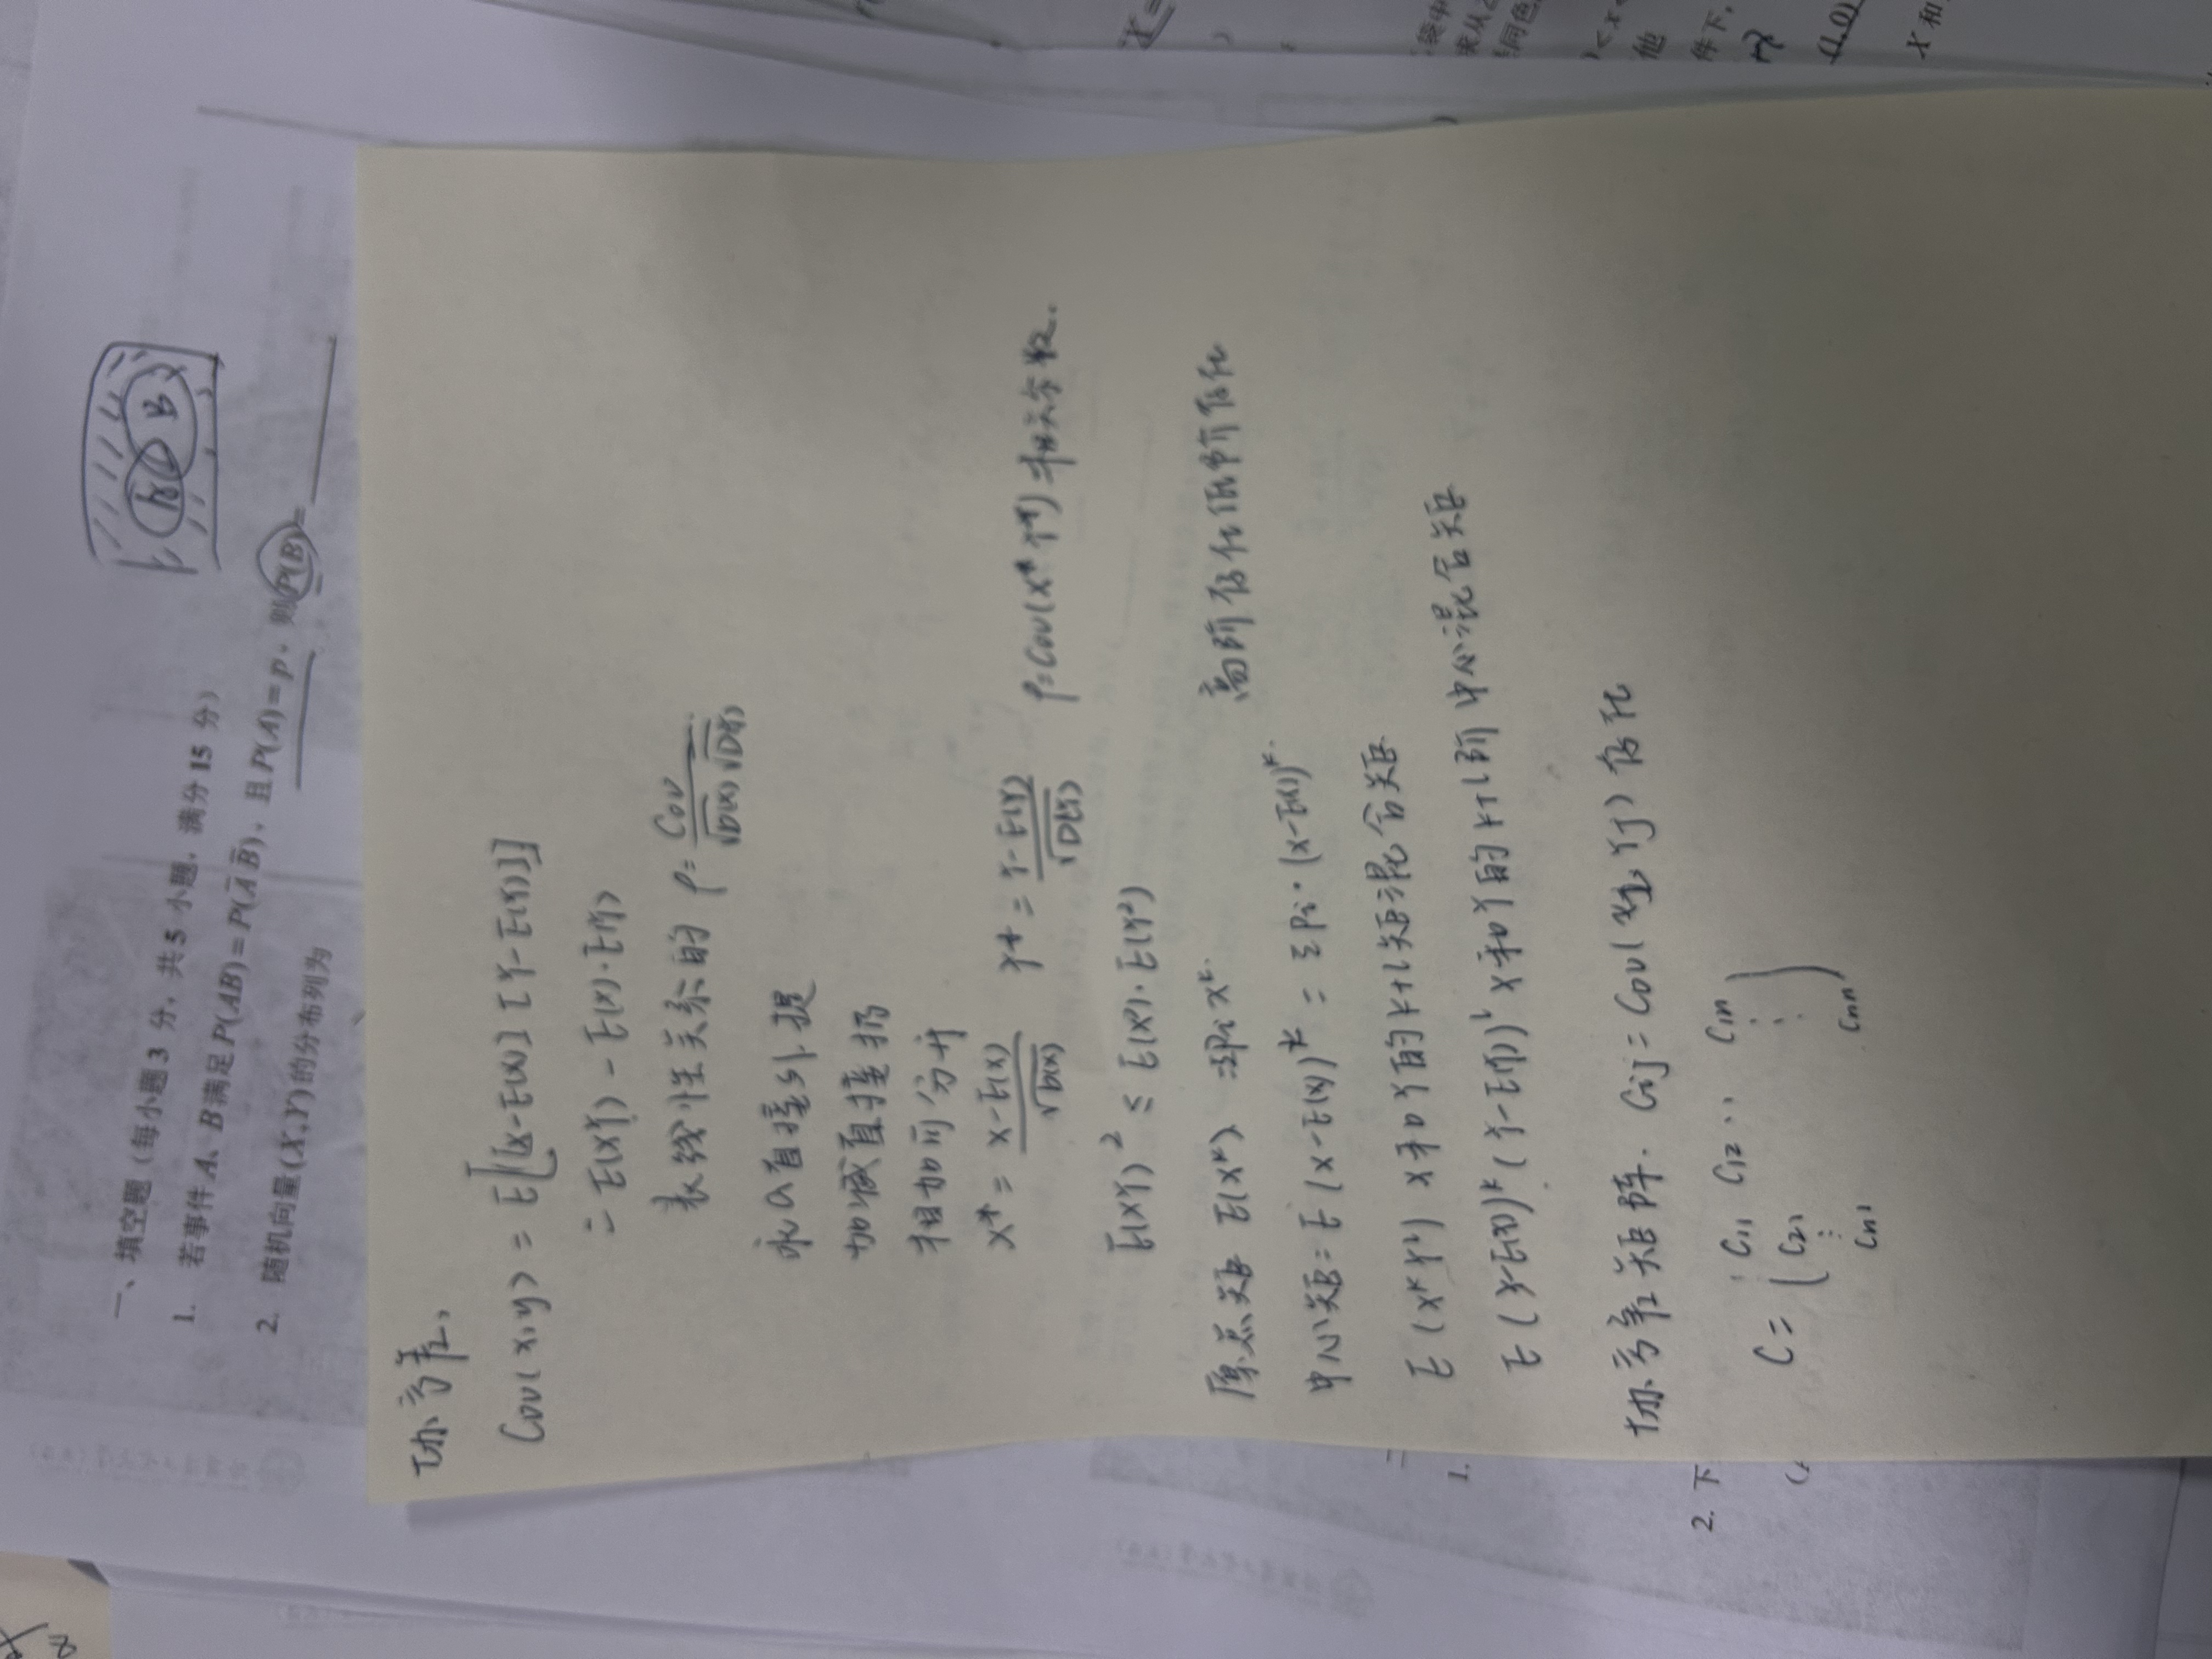 一、填空题（每小题 3 分，共 5 小题，满分 15 分）
A B
1. 若事件 A、B 满足 P(AB)=P(A̅ B̅)，且 P(A)=p，则 P(B)=
2. 随机向量 (X,Y) 的分布列为
协方差,
Cov(x,y) = E[[x-E(x)] [Y-E(Y)]]
= E(XY) - E(x)·E(Y)
表线性关系的 ρ= Cov / √D(x) √D(Y)
直接外提
加减直接扔
相加可分开
X* = x-E(x) / √D(x) Y* = Y-E(Y) / √D(Y) ρ=Cov(X* Y*) 相关系数.
E(XY)² ≤ E(X²)·E(Y²)
原点矩 E(X^k) =ΣPi X^k. 高阶存在低阶存在
中心矩= E (X-E(X))^k = ΣPi·(X-E(X))^k.
E (X^k Y^l) X和Y的k+l矩混合矩
E (X-E(X))^k (Y-E(Y))^l X和Y的k+l阶中心混合矩
协方差矩阵. Cij = Cov(Xi, Yj) 存在
C11 C12 ·· C1n
C = C21 ⋮
⋮
Cn1 Cnn
1.
2. 下
(A
X=
袋中
求从
同色
<x
他
件下,
(1,0)
X 和